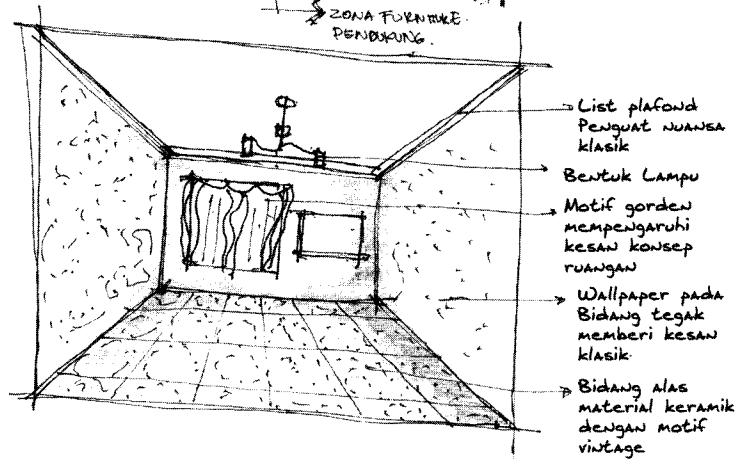 ZONA FURNITURE
PENDUKUNG.
List plafond
Penguat nuansa
klasik
Bentuk Lampu
Motif gorden
mempengaruhi
kesan konsep
ruangan
Wallpaper pada
Bidang tegak
memberi kesan
klasik.
Bidang alas
material keramik
dengan motif
vintage